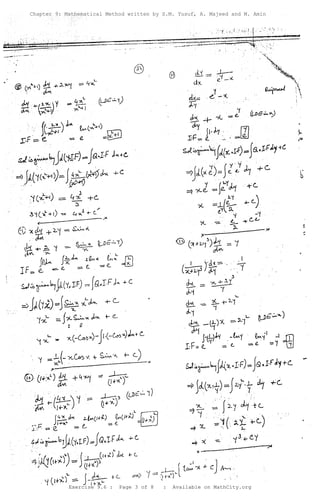 Chapter 9: Mathematical Method written by S.M. Yusuf, A. Majeed and M. Amin
(x²+1) dy/dx + 2xy = 4x²
dy/dx + (2x/(x²+1)) y = 4x²/(x²+1) (LDE in y)
IF = e^∫(2x/(x²+1))dx = e^ln(x²+1) = x²+1
Sol is given by ∫d(y.IF) = ∫Q.IF dx + C
⇒ ∫d(y(x²+1)) = ∫ 4x²/(x²+1) (x²+1) dx + C
y(x²+1) = 4x³/3 + C
3y(x²+1) = 4x³ + C'
x dy/dx + 2y = Sinx
dy/dx + 2/x y = Sinx/x (LDE in y)
IF = e^∫2/x dx = e^2lnx = e^lnx² = x²
Sol is given by ∫d(y.IF) = ∫Q.IF dx + C
⇒ ∫d(yx²) = ∫ Sinx/x x² dx + C
yx² = ∫x Sinx dx + C
yx² = x(-Cosx) - ∫1.(-Cosx)dx + C
y = 1/x² (-x Cosx + Sinx + C)
(1+x²) dy/dx + 4xy = 1/(1+x²)²
dy/dx + (4x/(1+x²)) y = 1/(1+x²)³ (LDE in y)
IF = e^∫4x/(1+x²) dx = e^2ln(1+x²) = e^ln(1+x²)² = (1+x²)²
Sol is given by ∫d(y.IF) = ∫Q.IF dx + C
⇒ ∫d(y(1+x²)²) = ∫ 1/(1+x²)³ (1+x²)² dx + C
y(1+x²)² = ∫ dx/(1+x²) + C ⇒ y = 1/(1+x²)² [tan⁻¹x + C] Ans.
dy/dx = 1/(e^y - x)
dx/dy = e^y - x Reciprocal
dx/dy + x = e^y (LDE in x)
IF = e^∫1.dy = e^y
Sol is given by ∫d(x.IF) = ∫Q.IF dy + C
⇒ ∫d(x e^y) = ∫e^y e^y dy + C
⇒ x e^y = ∫e^2y dy + C
x = 1/e^y (e^2y/2 + C)
x = e^y/2 + C e^-y
(x+2y³) dy/dx = y
(1/(x+2y³)) dx/dy = 1/y
dx/dy = (x+2y³)/y
dx/dy = x/y + 2y²
dx/dy - (1/y)x = 2y² (LDE in x)
IF = e^∫-1/y dy = e^-lny = e^lny⁻¹ = y⁻¹ = 1/y
Sol is given by ∫d(x.IF) = ∫Q.IF dy + C
⇒ ∫d(x.1/y) = ∫2y².1/y dy + C
⇒ x/y = ∫2y dy + C
⇒ x = y(2y²/2 + C)
⇒ x = y³ + Cy
Exercise 9.6 : Page 3 of 8 : Available on MathCity.org